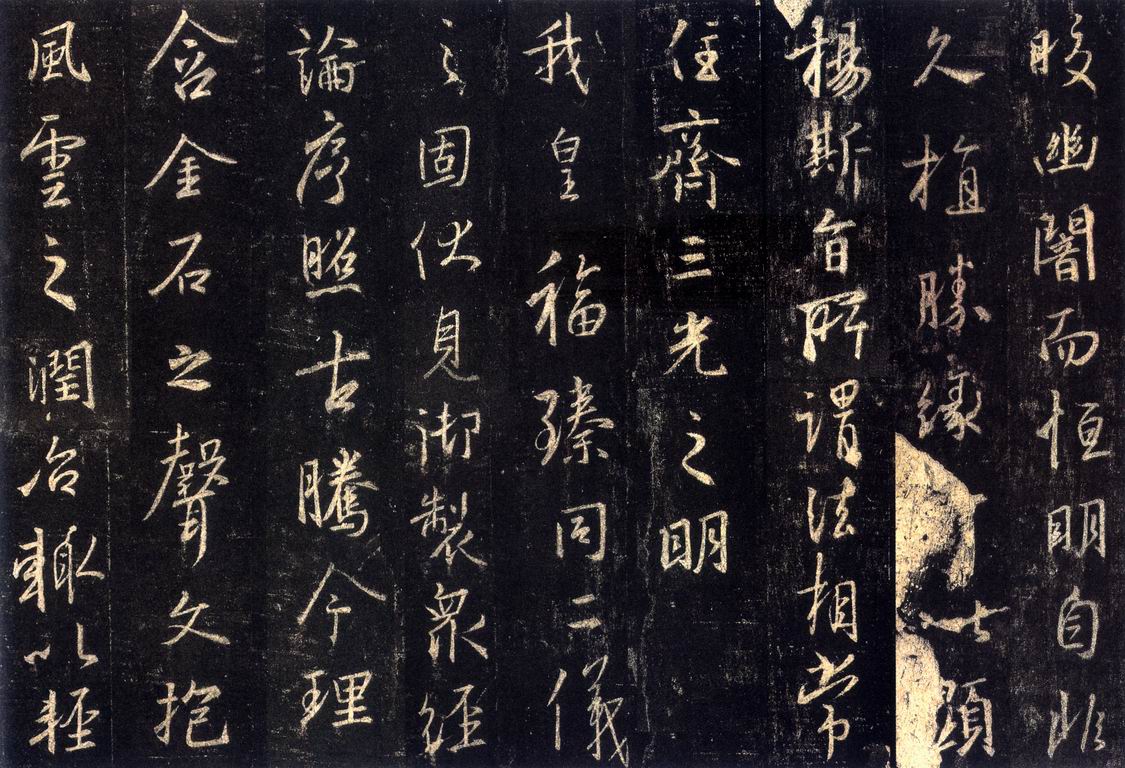 皎幽闇而恒明自非
久植勝緣以顯
揚斯旨所謂法相常
住齊三光之明
我皇福臻同二儀
之固伏見御製眾經
論序照古騰今理
含金石之聲文抱
風雲之潤治輒以輕